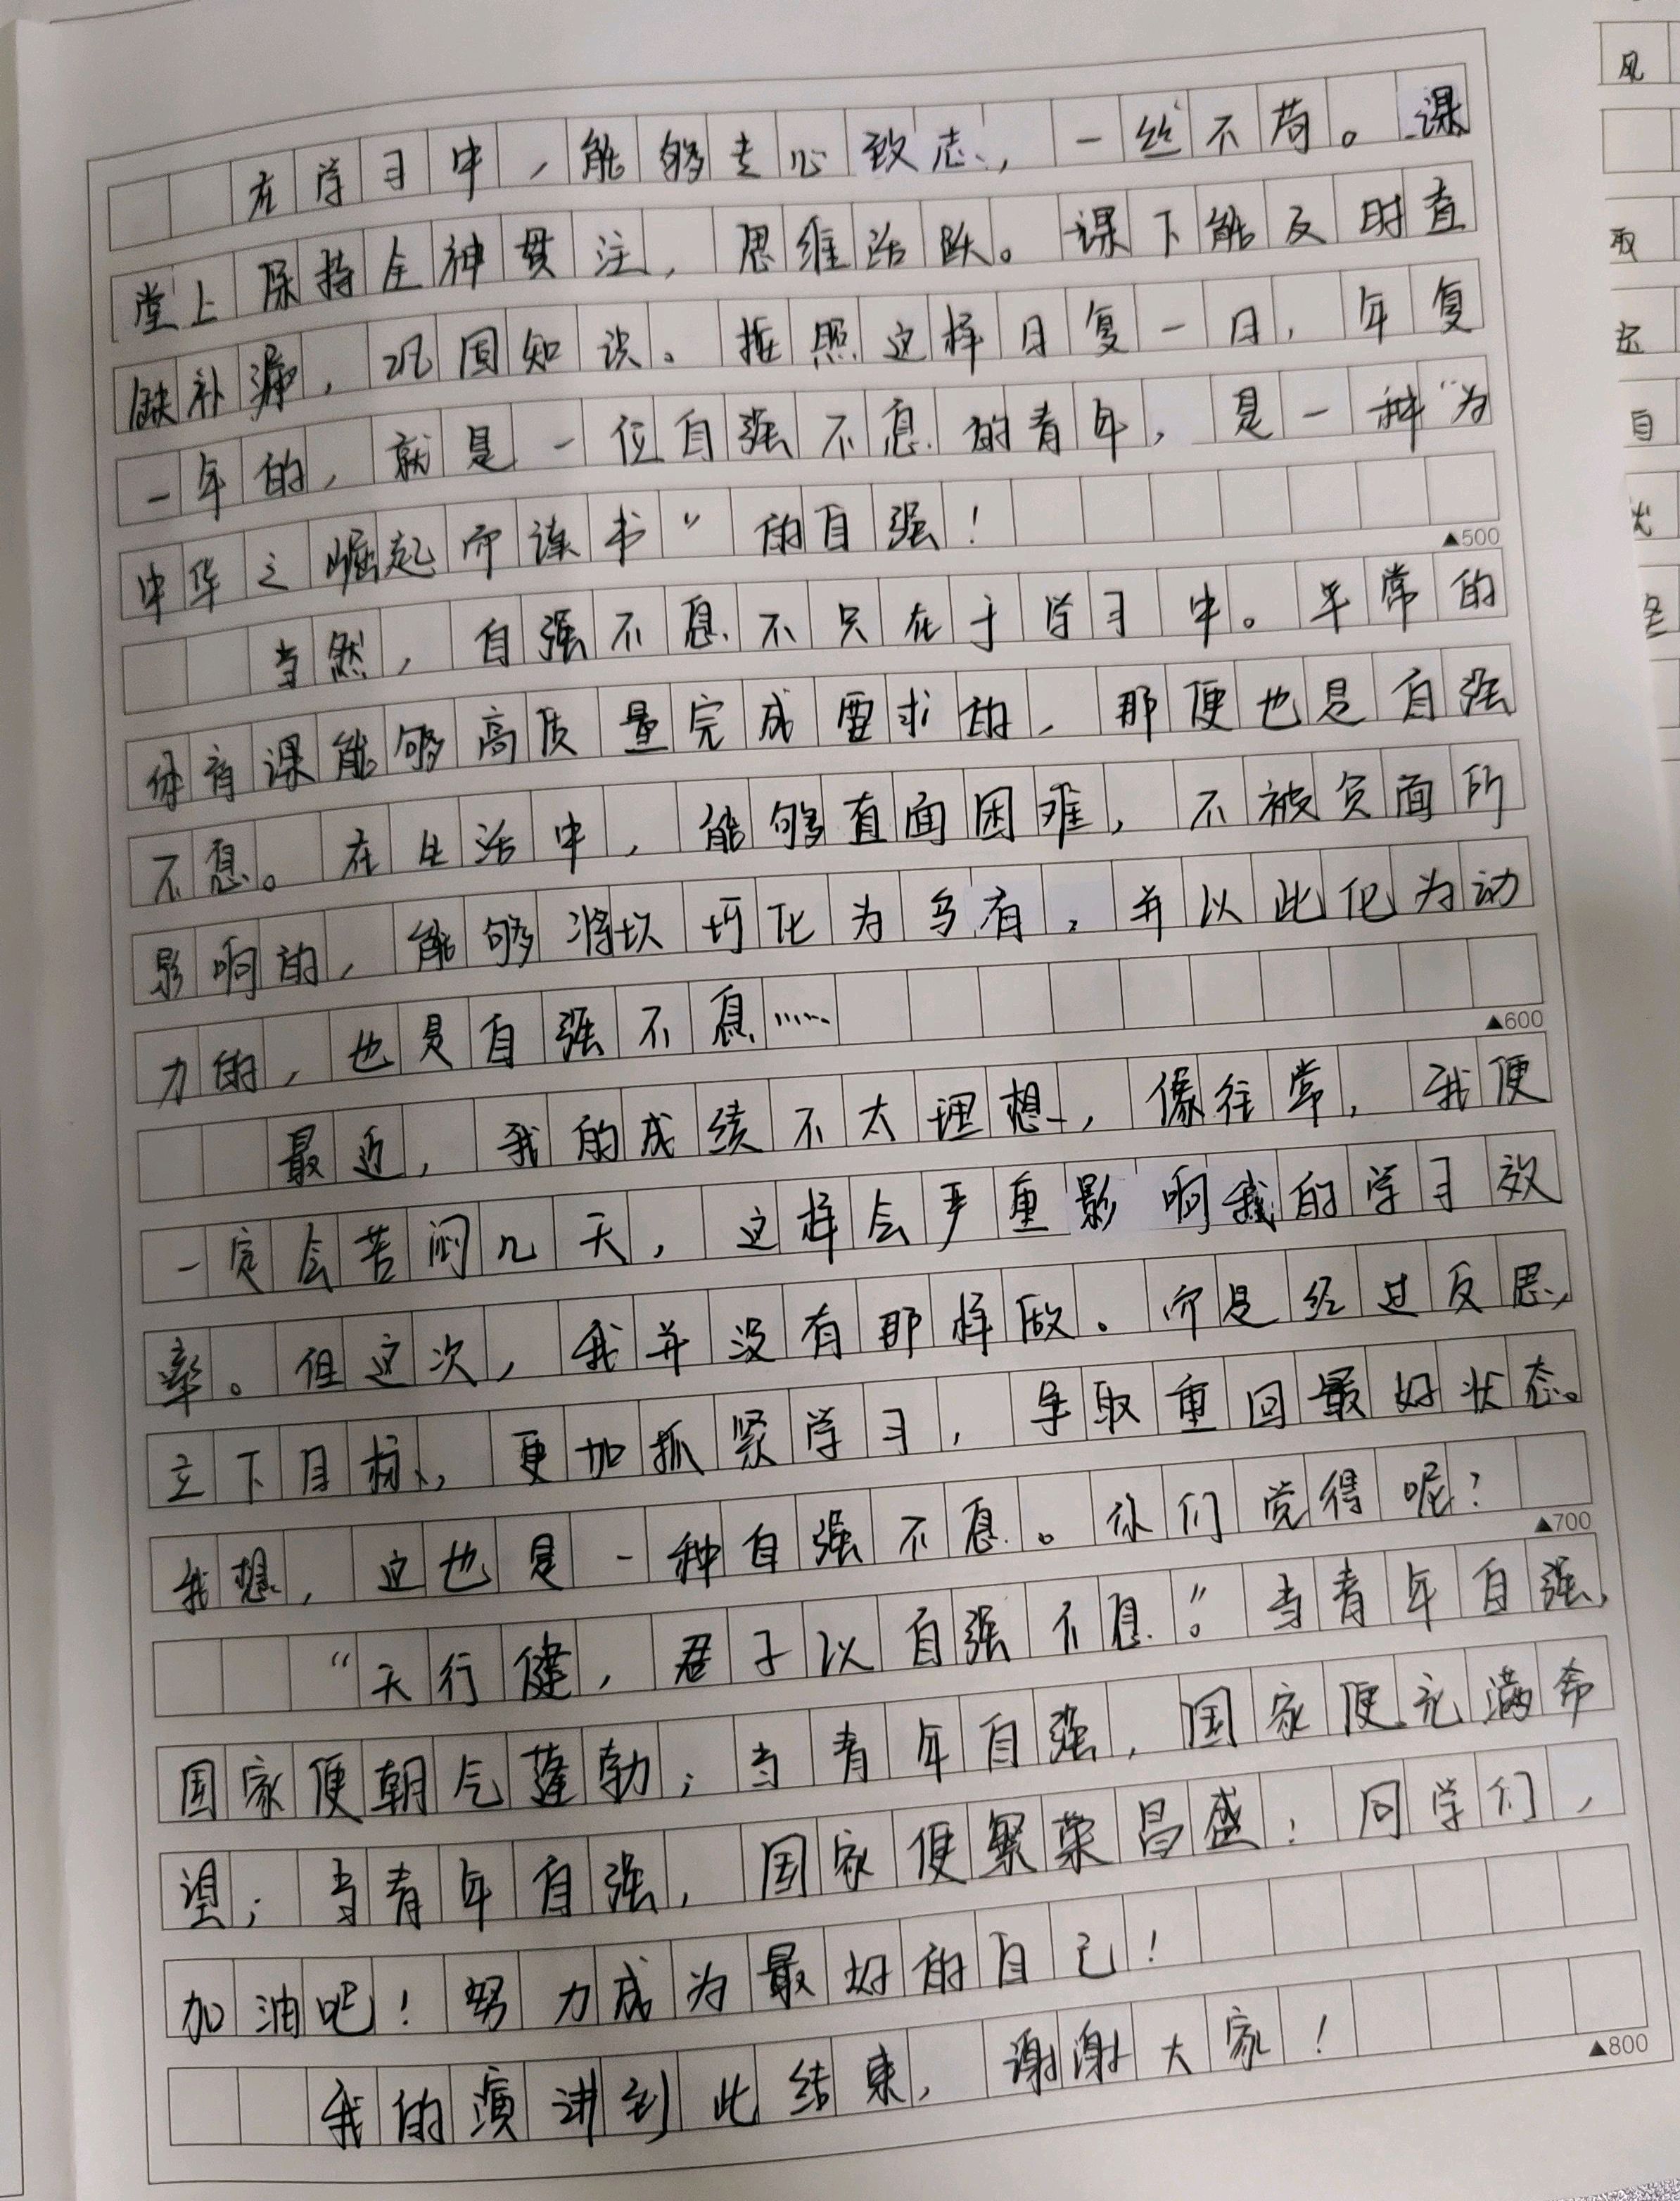 在学习中，能够专心致志，一丝不苟。课
堂上保持全神贯注，思维活跃。课下能及时查
缺补漏，巩固知识。按照这样日复一日，年复
一年的，就是一位自强不息的青年，是一种“为
中华之崛起而读书”的自强！
▲500
当然，自强不息不只在于学习中。平常的
体育课能够高质量完成要求的，那便也是自强
不息。在生活中，能够直面困难，不被负面所
影响的，能够将坎坷化为乌有，并以此化为动
力的，也是自强不息……
▲600
最近，我的成绩不太理想，像往常，我便
一定会苦闷几天，这样会严重影响我的学习效
率。但这次，我并没有那样做。而是经过反思，
立下目标，更加抓紧学习，争取重回最好状态。
我想，这也是一种自强不息。你们觉得呢？
▲700
“天行健，君子以自强不息”。当青年自强，
国家便朝气蓬勃；当青年自强，国家便充满希
望；当青年自强，国家便繁荣昌盛；同学们，
加油吧！努力成为最好的自己！
我的演讲到此结束，谢谢大家！
▲800
风
取
起
自